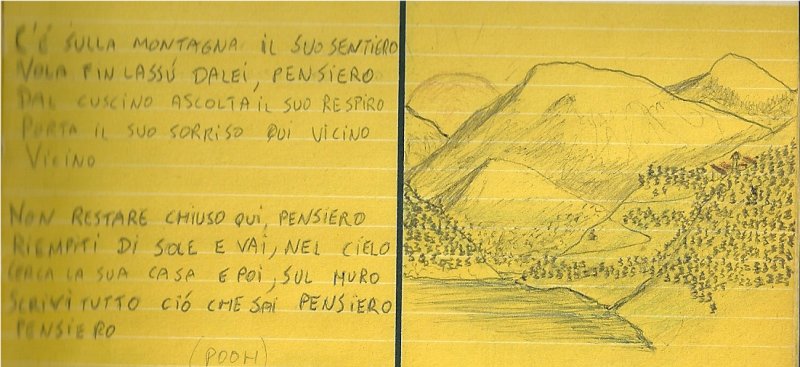 C'É SULLA MONTAGNA IL SUO SENTIERO
VOLA FIN LASSÚ DA LEI, PENSIERO
DAL CUSCINO ASCOLTA IL SUO RESPIRO
PORTA IL SUO SORRISO QUI VICINO
VICINO
NON RESTARE CHIUSO QUI, PENSIERO
RIEMPITI DI SOLE E VAI, NEL CIELO
CERCA LA SUA CASA E POI, SUL MURO
SCRIVI TUTTO CIÓ CHE SAI PENSIERO
PENSIERO
(POOH)